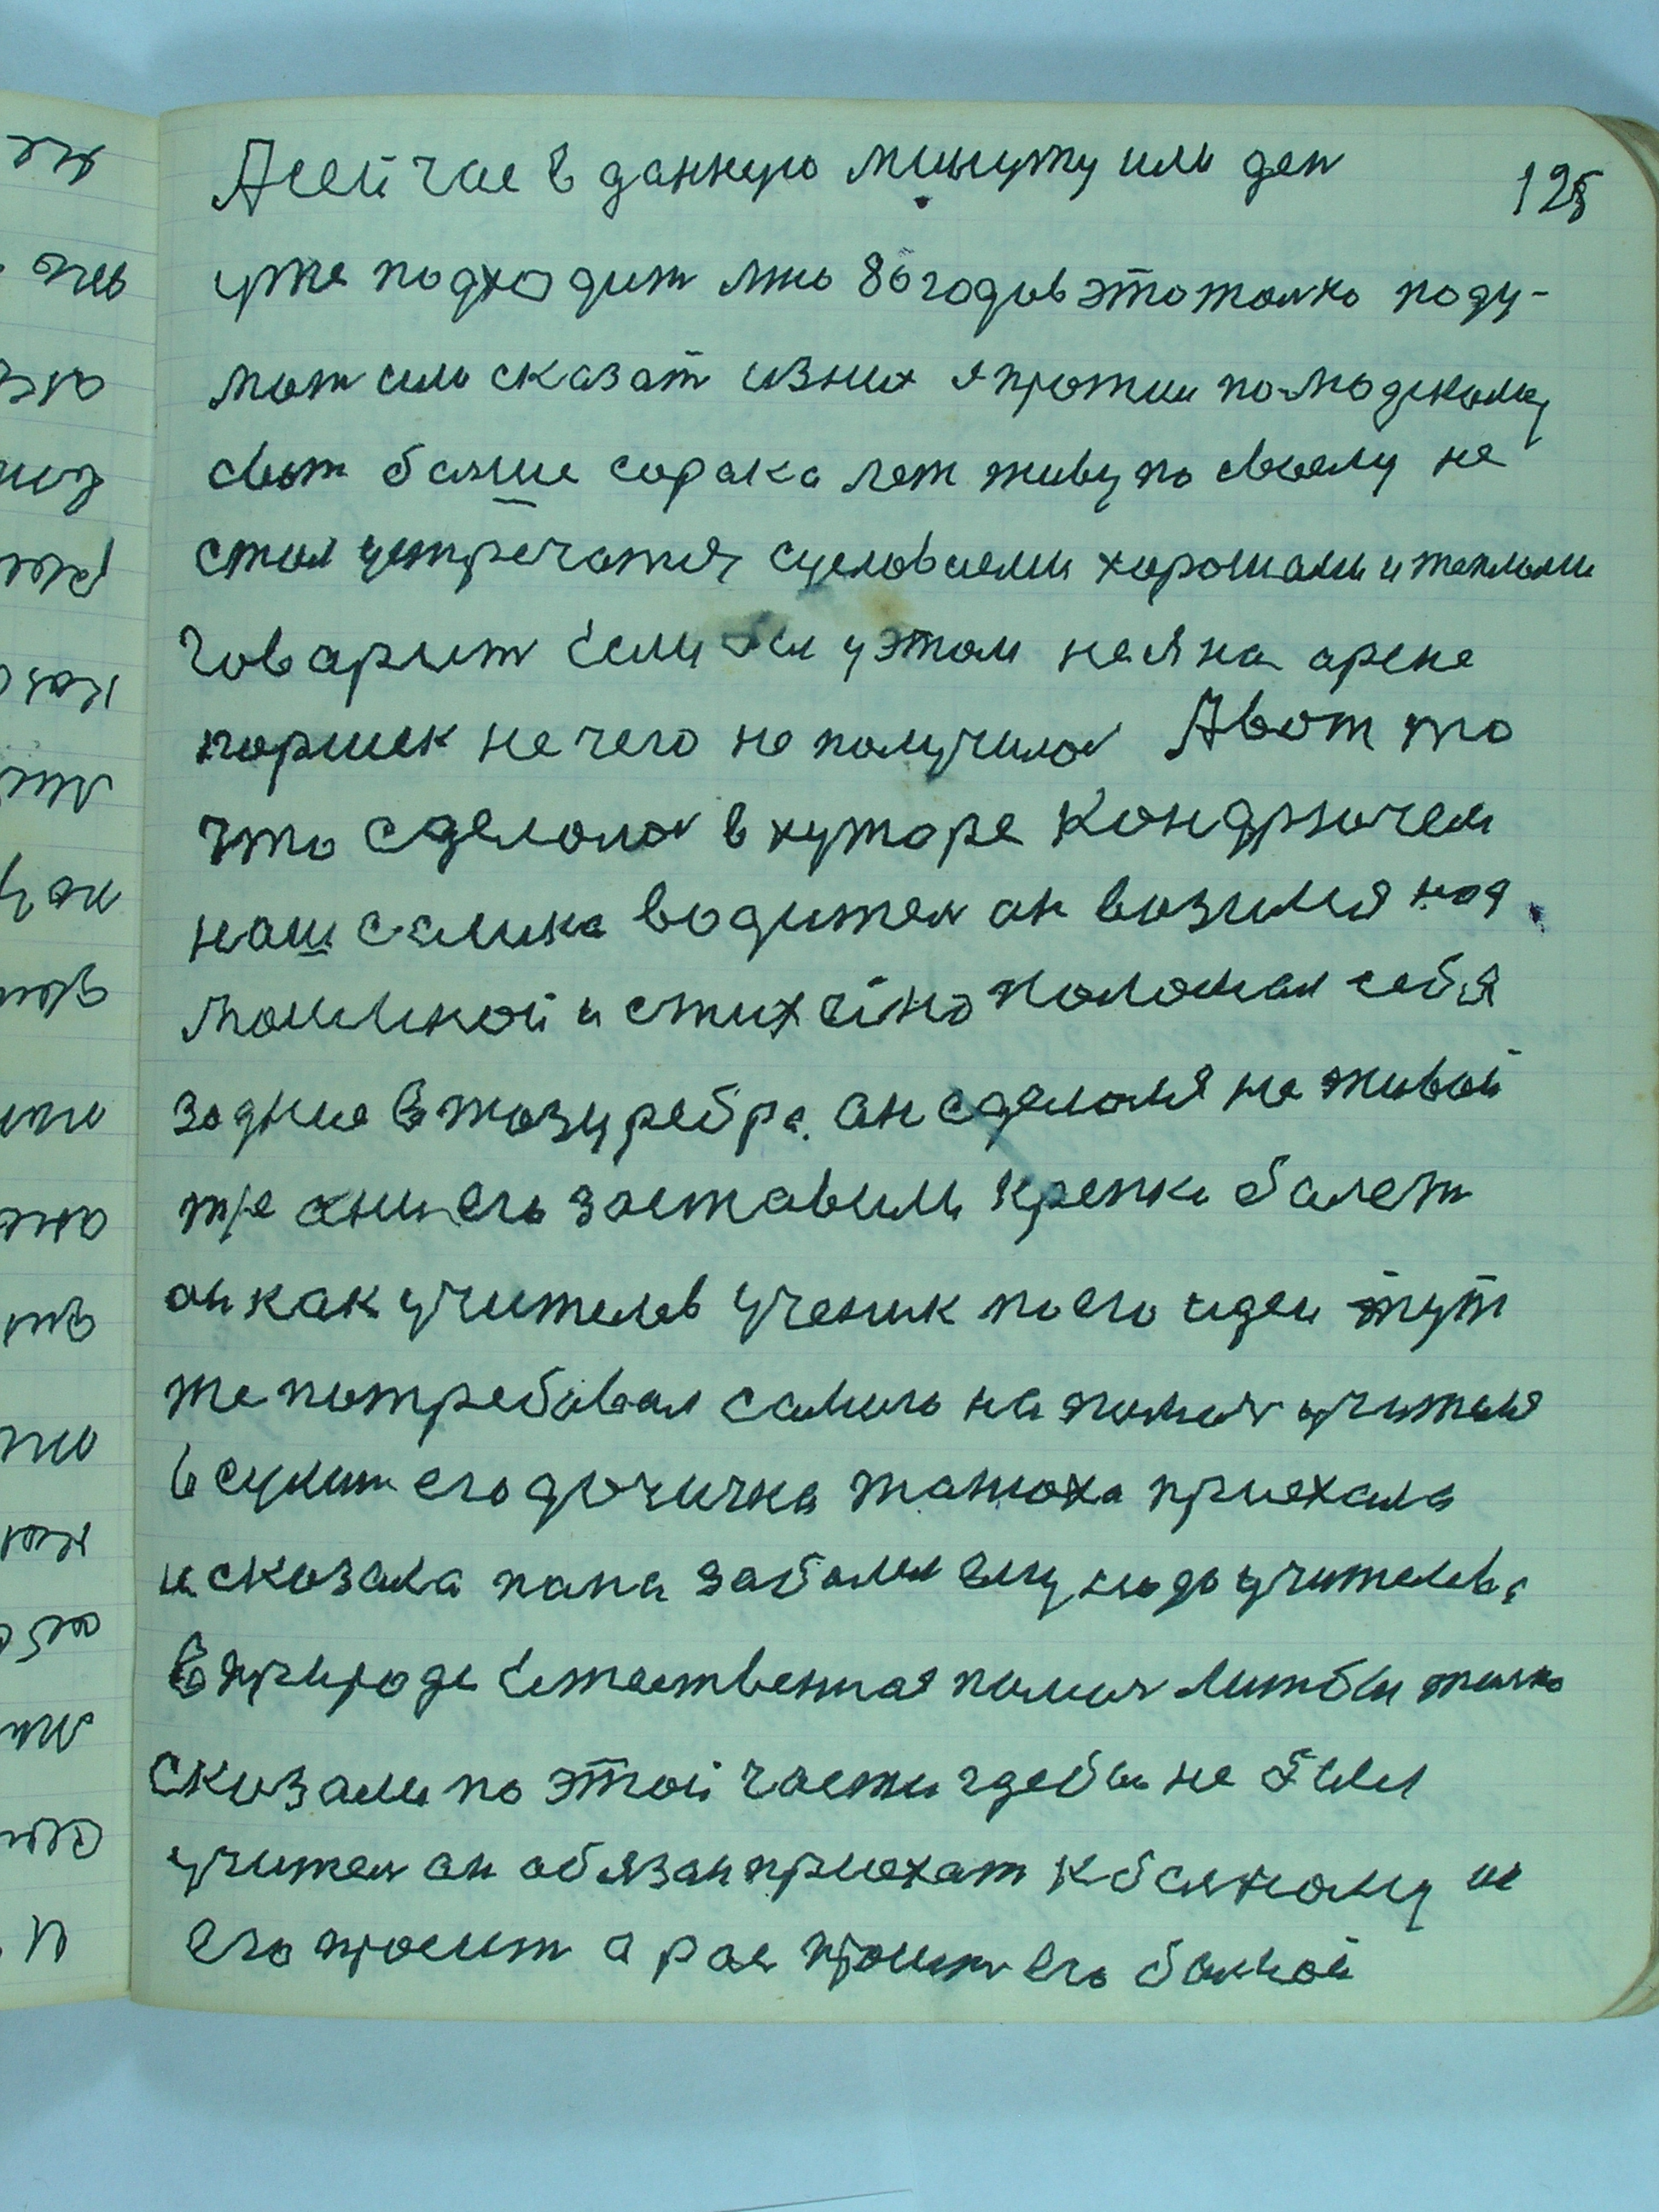 125
А сейчас в данную минуту или ден
уже подходит мне 86 годов это толко поду-
мат или сказат из них я прожил по-людскому
а вот болше сорака лет живу по своему не
стал устречатся с условиеми хорошами и теплыми
говарит если бы у этом не я на арене
поршек не чего не получилос А вот что
что сделолос в хуторе Кондрючем
наш с слика водител он возился над
машиной и стихейно поломал себя
задние в тозу ребра. он сделался не живой
тре они его заставили крепко балет
он как учителев ученик по его идеи тут
же потребовал самого на помощ учителя
в Сулин его дочичка танюха приехала
и сказала папа заболел ему надо учителева
в природе естественная помощ лит бы толко
сказали по этой части где бы не был
учител он обязан приехат к болному и
его просит а рас просит его болной